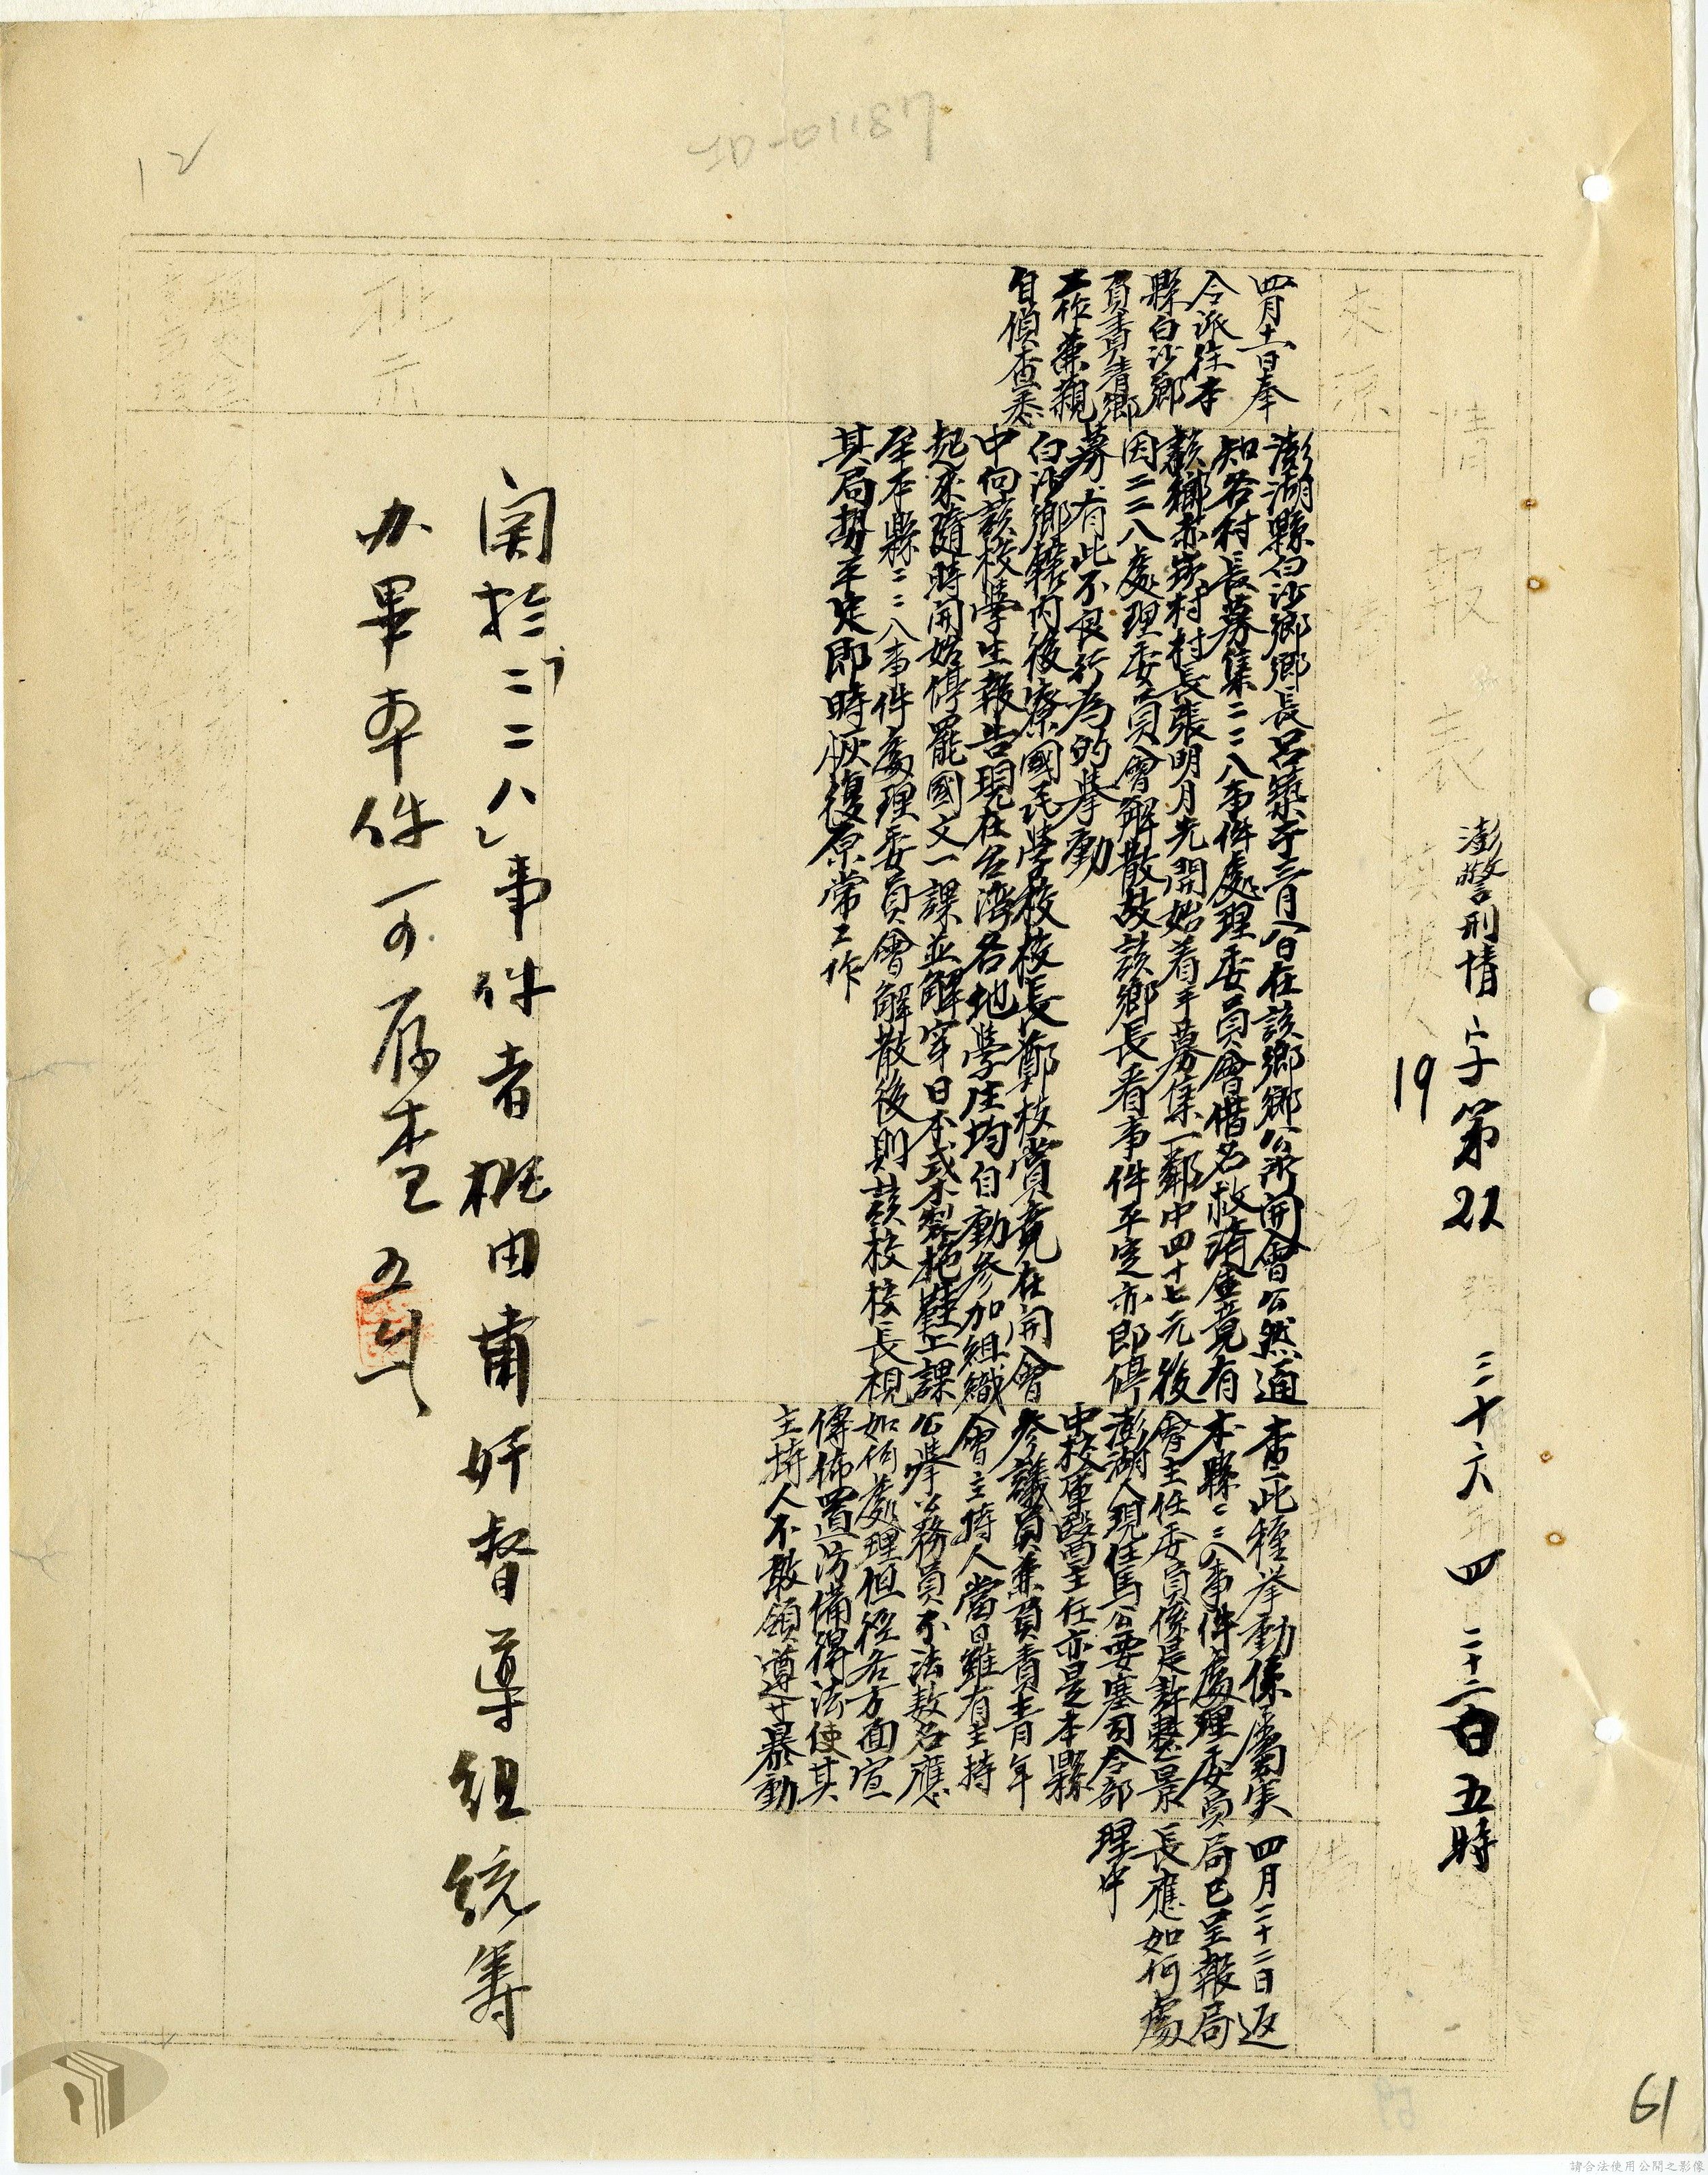 情報表
澎警刑情字第22號 三十六年四月二十二日五時
19
填報人
來源
情況
判斷
四月十一日奉
令派往本
縣白沙鄉
負責清鄉
工作兼親
自偵查悉
澎湖縣白沙鄉鄉長呂築于三月八日在該鄉鄉公所開會公然通
知各村長募集二二八事件處理委員會借名救濟金竟有
該鄉赤崁村村長張明月先開始着手募集一鄰中四十七元後
因二二八處理委員會解散故該鄉長看事件平定亦即停
募有此不良行為的舉動
白沙鄉轄內後寮國民學校校長鄭枝賞竟在開會
中向該校學生報告現在台灣各地學生均自動參加組織
起來隨時開始停罷國文一課並解穿日本式木製拖鞋上課
至本縣二二八事件處理委員會解散後則該校校長視
其局勢平定即時恢復原常工作
查此種舉動係屬實
本縣二二八事件處理委員
會主任委員係是許整景
澎湖人現任馬公要塞司令部
中校軍醫主任亦是本縣
參議員兼負責青年
會主持人當日雖有主持
公舉公務員不法數名應
如何處理但經各方面宣
傳佈置防備得法使其
主持人不敢領導暴動
四月二十二日返
局已呈報局
長應如何處
理中
批示
關於「二二八」事件者概由肅奸督導組統籌
办畢本件可存查
61
12
請合法使用公開之影像